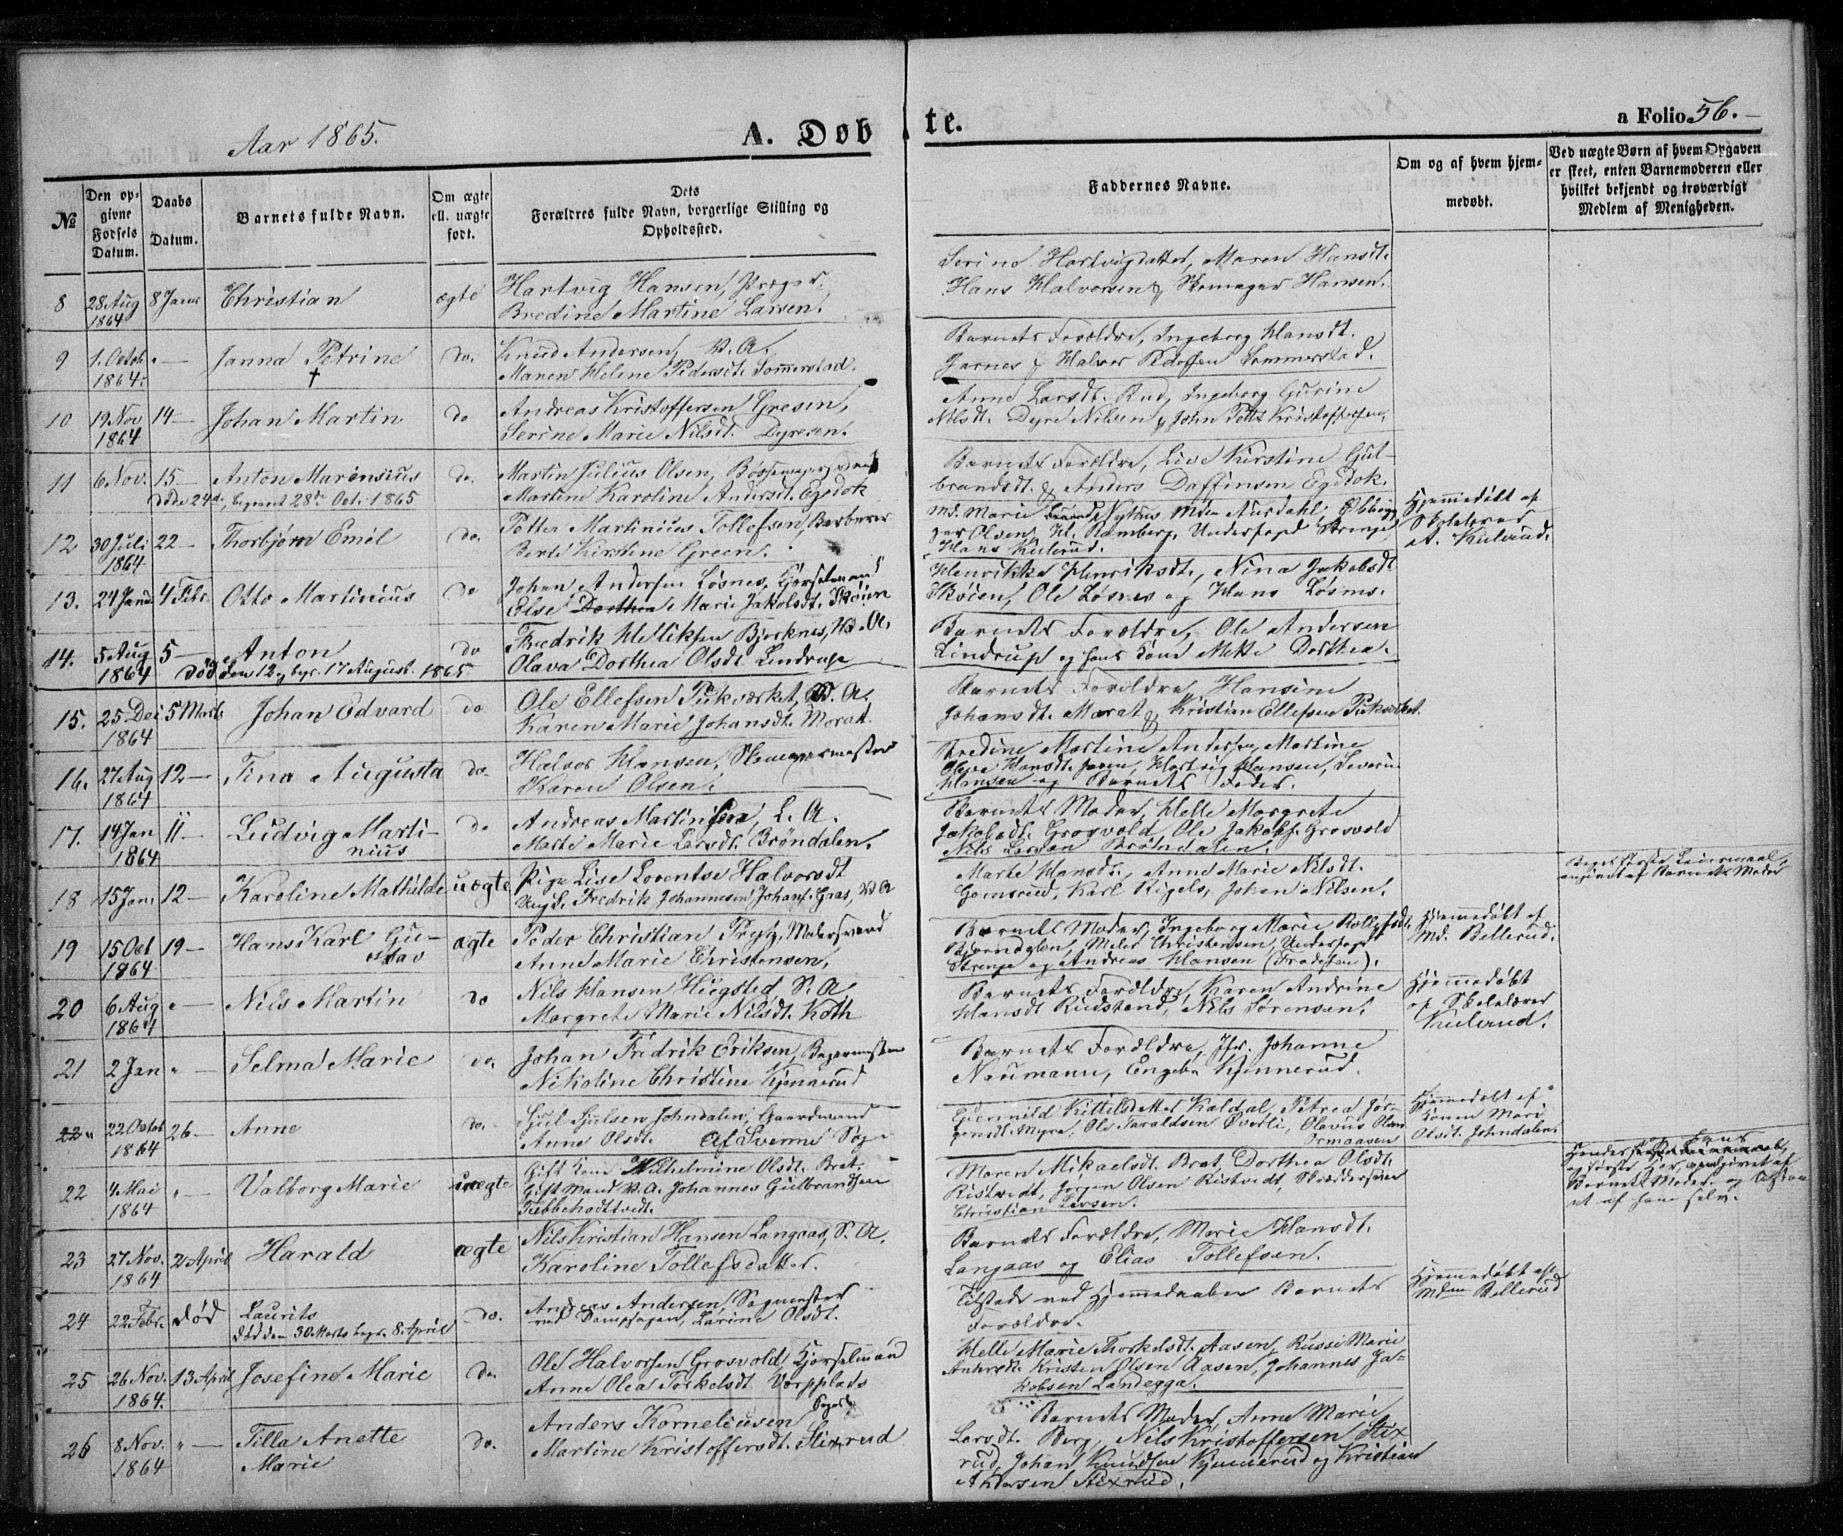 Aar 1865.
A. Døbte.
a Folio 56.
№
Den opgivne Fødsels Datum.
Daabs Datum.
Barnets fulde Navn.
Om ægte ell. uægte født.
Dets Forældres fulde Navn, borgerlige Stilling og Opholdssted.
Faddernes Navne.
Om og af hvem hjemmedøbt.
Ved uægte Børn af hvem Opgaven er skeet, enten Barnemoderen eller hvilket bekjendt og troværdigt Medlem af Menigheden.
8 28 Aug 1864 8 Janr Christian ægte Hartvig Hansen,
Bredine Martine Larsen.
Serine Hartvigdatter, Maren Hansdt.
Hans Halvorsen & Skomager Hansen.
9 1. Octob 1864. " — Janna Petrine † do. Knud Andersen, B. A.
Maren Helene Pedersdt. Sommerstad.
Barnets Forældre, Ingeborg Hansdt.
Jarnes & Halvor Sommerstad.
10 19 Nov 1864 14 — Johan Martin do Andreas Kristoffersen Gresen,
Serine Marie Nilsdt. Dyresen.
Anne Larsdt. Rud, Ingeborg Gurine
Nilsdt. Dyre Nilsen & John Kristoffersen,
11 6 Nov. 15 — Anton Marensius do. Martin Julius Olsen,
døde 24de, begravet 28de Oct. 1865
Martine Karoline Andersdt. Egedok
Barnets Forældre, Live Kirstine Gulbrandsdt.
& Anders Daffinsen Egedok.
12 30 Juli 1864 22 — Thorbjørn Emil do. Petter Martinius Tollefsen, Barberer
Berte Kirstine Green.
Md. Marie Nyhus Mdm Aurdahl
Olsen, Kl. Ramberg, Underfoged Strenge,
Hans Kulerud.
Hjemmedøbt af
Skolelærer
A. Kulerud.
13. 24 Janr 4 Febr. Otto Martinius do Johan Andersen Løsnes, Kjørselmand
Else Dorthea Marie Jakobsdt. Skoien
Henrikke Henriksdt., Nina Jakobsdt
Skoien, Ole Løsnes og Hans Løsnes.
14. 5 Aug 1864 5 — Anton do Fredrik Helliksen Bjerknes, B. A.
Død den 12, begr. 17 August. 1865
Olava Dorthea Olsdt. Lindrup
Barnets Forældre, Ole Andersen
Lindrup og hans Kone Mette Dorthea.
15. 25 Dec 1864 5 Marts Johan Edvard do Ole Ellefsen Pukverket, B. A.
Karen Marie Johansdt. Morat.
Barnets Forældre, Hansine
Johansdt. Morat & Kristian Ellefsen Pukverket.
16. 27 Aug 1864 12 — Tina Augusta do. Halvor Hansen, Skomagermester
Karen Olsen.
Bredine Martine Andersen, Martine
Hansdt. Hartvig Hansen, Severin
Hansen og Barnets Fader.
17. 14 Jan 1864 11 — Ludvig Martinius do Andreas Martinsen, L. A.
Marte Marie Larsdt. Brøndalen.
Barnets Moder, Helle Margrete
Jakobsdt. Grosvold, Ole Jakobs. Grosvold
Nils Larsen Brøndalen.
18 15 Jan. 12 — Karoline Mathilde uægte Pige Lise Lorentse Halvorsdt
Ungk. Fredrik Johannesen Gaas, B A
Marte Hansdt., Anne Marie Nilsdt.
Gomsrud, Karl Rigels, Johan Nilsen.
Begges første Leiermaal,
angivet af Barnets Moder
19 15 Oct 1864 19 — Hans Karl Gustav ægte Peder Christian Preftz,
Anne Marie Christensen.
Barnets Moder, Ingeborg Marie
Christensen, Underfoged
Strenge og Andreas Hansen
Hjemmedøbt af
Md. Bellerud.
20 6 Aug 1864 " — Nils Martin do Nils Hansen Hiegsted S. A.
Margrete Marie Nilsdt. Koth
Barnets Forældre, Karen Andrine
Hansdt Rudstand, Nils Sørensen.
Hjemmedøbt
af Skolelærer
Kulerud.
21 2 Jan " — Selma Marie do. Johan Fredrik Eriksen, Bagermester
Nikoline Christine Kjennerud
Barnets Forældre, Jfr. Johanne
Naumann, Engebr. Kjennerud.
22 22 Octob 1864 26 — Anne do. Gjul Gjulsen Johndalen, Gaardmand
Anne Olsdt. Af Svenne Sogn
Gunnild Kittilsdatter Kaldal, Petrea Jørgensdt.
Myra, Ole Taraldsen Øverli, Olavus Olsen
Ormaasen
Hjemmedøbt af
Konen Mari
Olsdt. Johndalen.
22 4 Mai 1864 " — Valborg Marie uægte Gift Kone Wilhelmine Olsdt. Brat.
Gift Mand B. A. Johannes Gulbrandsen
Maren Mikaelsdt. Brat, Dorthea Olsdt.
Ristvedt, Jørgen Olsen Ristvedt, Skræddersvend
Christian Larsen.
Hendes
og første Hor, angivet af
Barnets Moder og
af ham selv.
23 27 Nov. 1864 2 April Harald ægte Nils Kristian Hansen Langaas, S. A.
Karoline Tollefsdatter.
Barnets Forældre, Marie Hansdt.
Langaas og Elias Tollefsen.
24 22 Febr. død Laurits do. Andreas Andersen, Sagmester
død den 30 Marts begr. 8. April
ved Dampsagen, Larine Olsdt.
Tilstede ved Hjemmedaaben Barnets
Forældre.
Hjemmedøbt af
Mdm Bellerud
25 26 Nov. 1864. 13 April Josefine Marie do. Ole Halvorsen Grosvold, Kjørselmand
Anne Olea Torkelsdt Værpplads
Helle Marie Thorkelsdt. Aasen, Russe Marie
Andersdt. Kristen Olsen Aasen, Johannes Jakobsen
Landegga.
26 8 Nov. 1864 " — Tilla Anette Marie do. Anders Korneliusen
Martine Kristoffersdt. Stixrud
Barnets Moder, Anne Marie
Larsdt. Berg, Nils Kristoffersen Stixrud,
Johan Knudsen Kjennerud og Kristian
Andersen Stixrud.